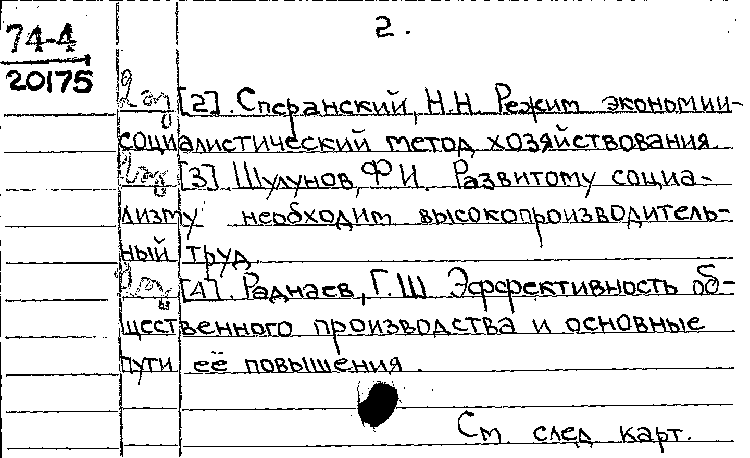 2.
74-4
20175
[2]. Сперанский, Н.Н. Режим экономии-
социалистический метод хозяйствования
[3] Шулунов, Ф И. Развитому социа-
лизму необходим высокопроизводитель-
ный труд
[4]. Раднаев, Г.Ш Эффективность об-
щественного производства и основные
пути её повышения.
См след карт.